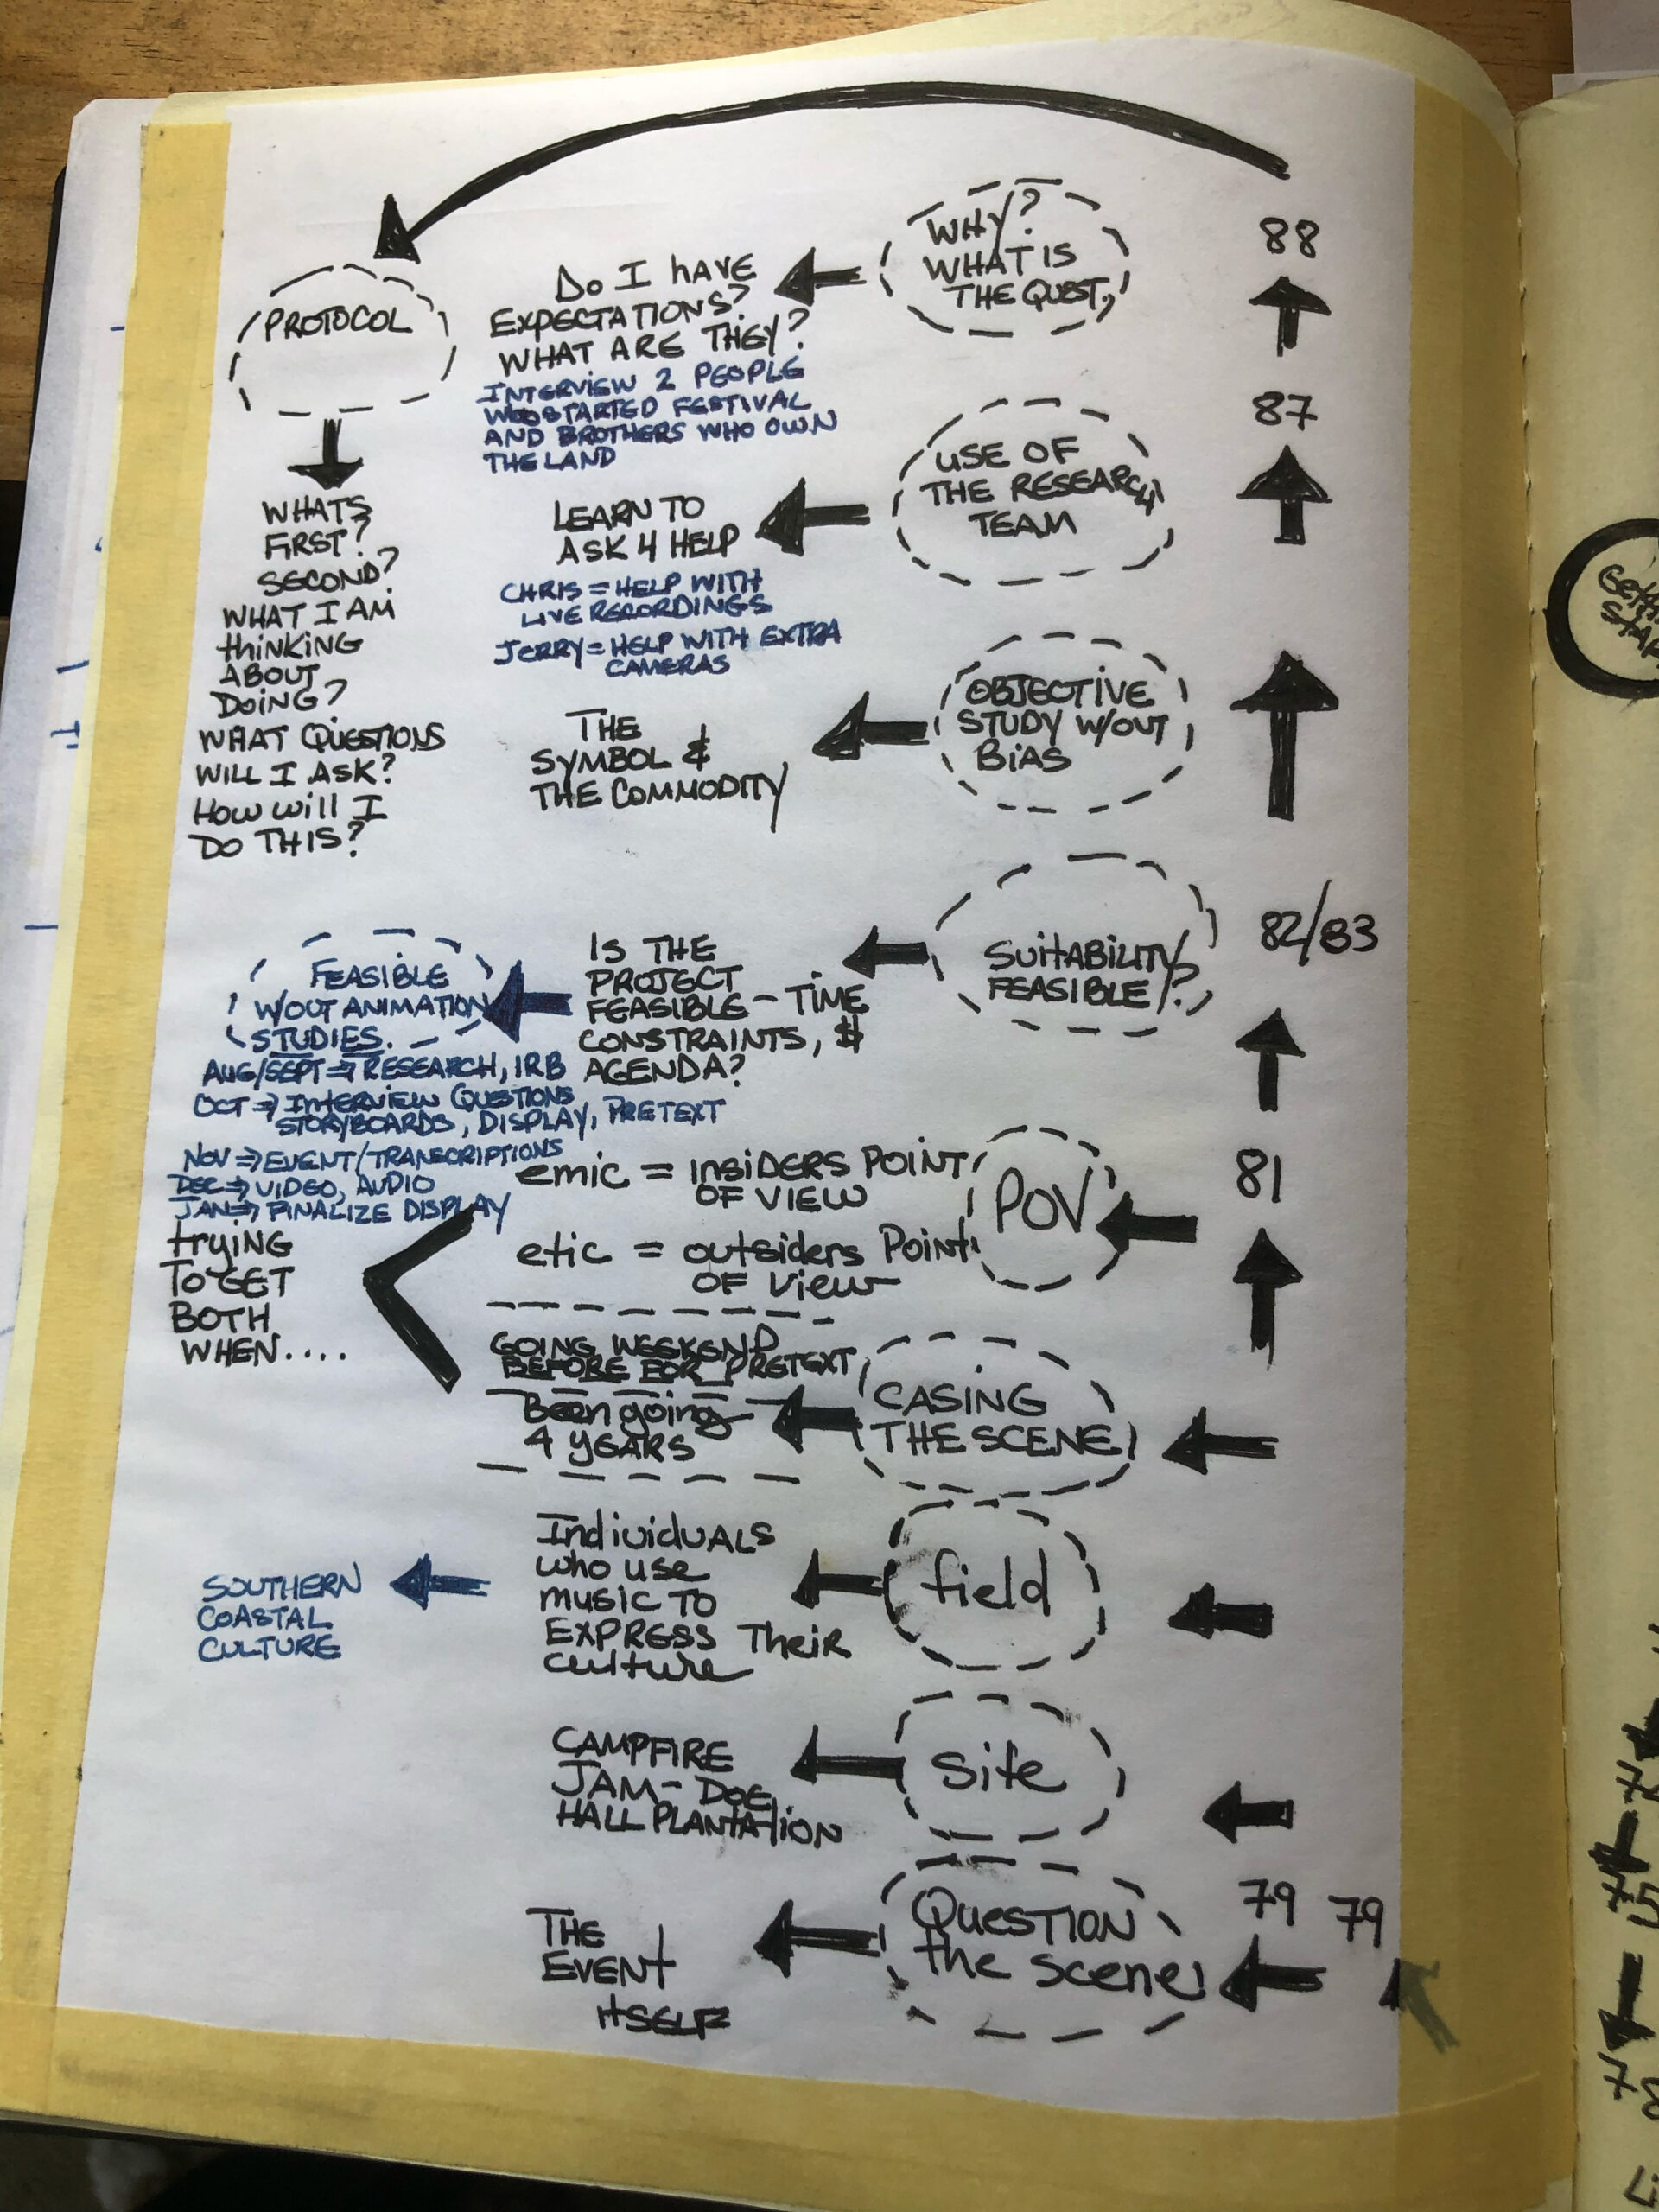 WHY?
WHAT IS
THE QUEST,
88
DO I HAVE
EXPECTATIONS?
WHAT ARE THEY?
INTERVIEW 2 PEOPLE
WHO STARTED FESTIVAL
AND BROTHERS WHO OWN
THE LAND
PROTOCOL
WHATS
FIRST?
SECOND?
WHAT I AM
thiNKING
ABOUT
DOING?
WHAT QUESTIONS
WILL I ASK?
How will I
DO THIS?
87
USE OF
THE RESEARCH
TEAM
LEARN TO
ASK 4 HELP
CHRIS = HELP WITH
LIVE RECORDINGS
JERRY = HELP WITH EXTRA
CAMERAS
OBJECTIVE
STUDY W/OUT
BIAS
THE
SYMBOL &
THE COMMODITY
82/83
SUITABILITY/
FEASIBLE?
IS THE
PROJECT
FEASIBLE - TIME
CONSTRAINTS, $
AGENDA?
FEASIBLE
W/OUT ANIMATION
STUDIES.
AUG/SEPT ⇒ RESEARCH, IRB
OCT ⇒ INTERVIEW QUESTIONS
STORYBOARDS, DISPLAY, PRETEXT
NOV ⇒ EVENT/TRANSCRIPTIONS
DEC ⇒ VIDEO, AUDIO
JAN ⇒ FINALIZE DISPLAY
81
POV
emic = INSIDERS POINT
OF VIEW
etic = outsiders Point
OF View
trYING
TO GET
BOTH
WHEN....
CASING
THE SCENE
GOING WEEKEND
BEFORE FOR PRETEXT
Been going
4 YEARS
field
IndividUALS
who use
music TO
EXPRESS Their
culture
SOUTHERN
COASTAL
CULTURE
Site
CAMPFIRE
JAM - DOE
HALL PLANTATION
79 79
QUESTION
the scene
THE
EVENT
ITSELF
75
78